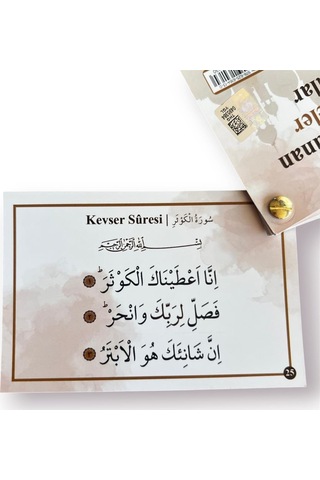 Kevser Sûresi | سُورَةُ الْكَوْثَرِ
بِسْمِ اللّٰهِ الرَّحْمٰنِ الرَّحِيمِ
اِنَّا اَعْطَيْنَاكَ الْكَوْثَرَ ۞١
فَصَلِّ لِرَبِّكَ وَانْحَرْ ۞٢
اِنَّ شَانِئَكَ هُوَ الْاَبْتَرُ ۞٣
25